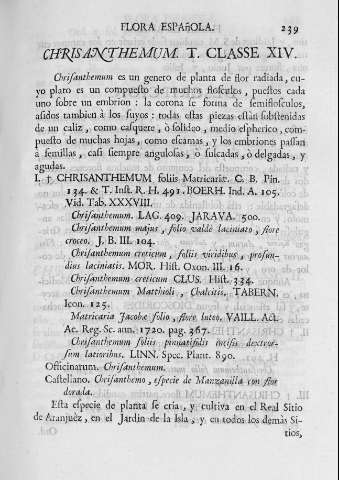 FLORA ESPAñOLA. 239
CHRISANTHEMUM. T. CLASSE XIV.
Chrisanthemum es un genero de planta de flor radiada, cu-
yo plato es un compuesto de muchos flosculos, puestos cada
uno sobre un embrion: la corona se forma de semiflosculos,
asidos tambien à los suyos: todas estas piezas están substenidas
de un caliz, como casquete, ò solideo, medio espherico, com-
puesto de muchas hojas, como escamas, y los embriones passan
à semillas, casi siempre angulosas, ò sulcadas, ò delgadas, y
agudas.
I. † CHRISANTHEMUM foliis Matricariæ. C. B. Pin.
134. & T. Inst. R. H. 491. BOERH. Ind. A. 105.
Vid. Tab. XXXVIII.
Chrisanthemum. LAG. 409. JARAVA. 500.
Chrisanthemum majus, folio valdè laciniato, flore
croceo. J. B. III. 104.
Chrisanthemum creticum, foliis viridibus, profun-
dius laciniatis. MOR. Hist. Oxon. III. 16.
Chrisanthemum creticum CLUS. Hist. 334.
Chrisanthemum Matthioli, Chalcitis. TABERN.
Icon. 125.
Matricaria Jacobæ folio, flore luteo. VAILL. Act.
Ac. Reg. Sc. ann. 1720. pag. 367.
Chrisanthemum foliis pinnatifidis incisis extror-
sum latioribus. LINN. Spec. Plant. 890.
Officinarum. Chrisanthemum.
Castellano. Chrisanthemo, especie de Manzanilla con flor
dorada.
Esta especie de planta se cria, y cultiva en el Real Sitio
de Aranjuèz, en el Jardin de la Isla, y en todos los demàs Si-
tios,